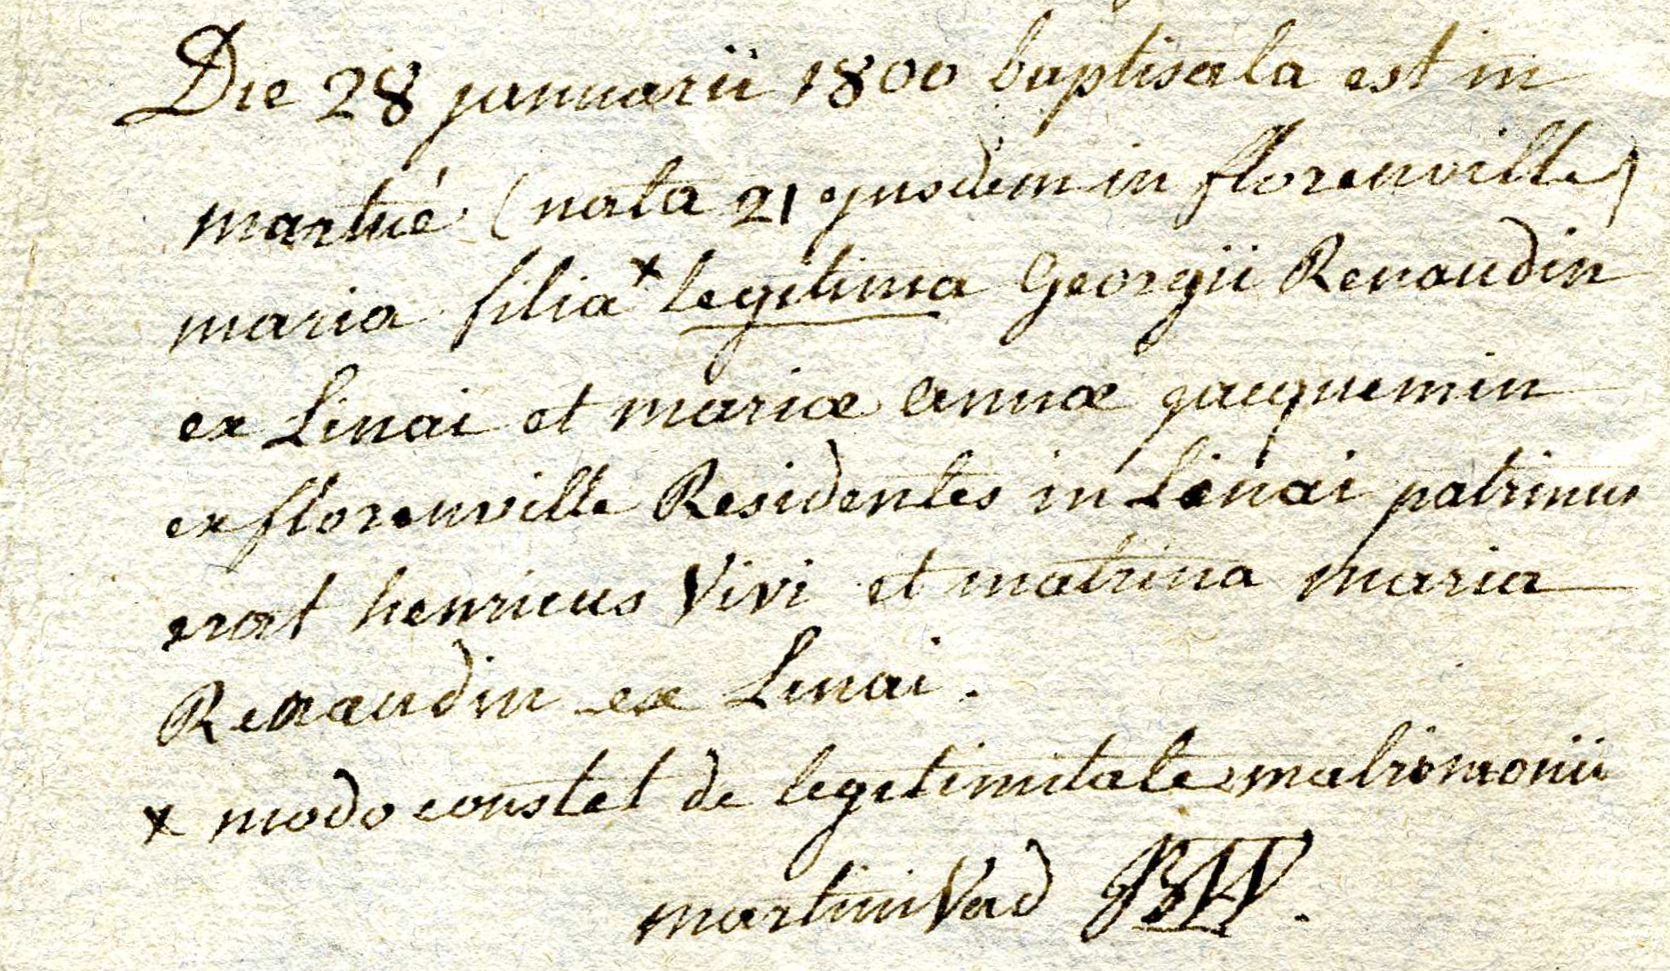 Die 28 januarii 1800 baptisata est in
martué (nata 21 ejusdem in florenville)
maria filia x legitima Georgii Renaudin
ex Linai et mariæ annæ jacquemin
ex florenville Residentes in Linai patrinus
erat henricus Vivi et matrina maria
Renaudin ex Linai.
x modo constet de legitimitate matrimonii
martini